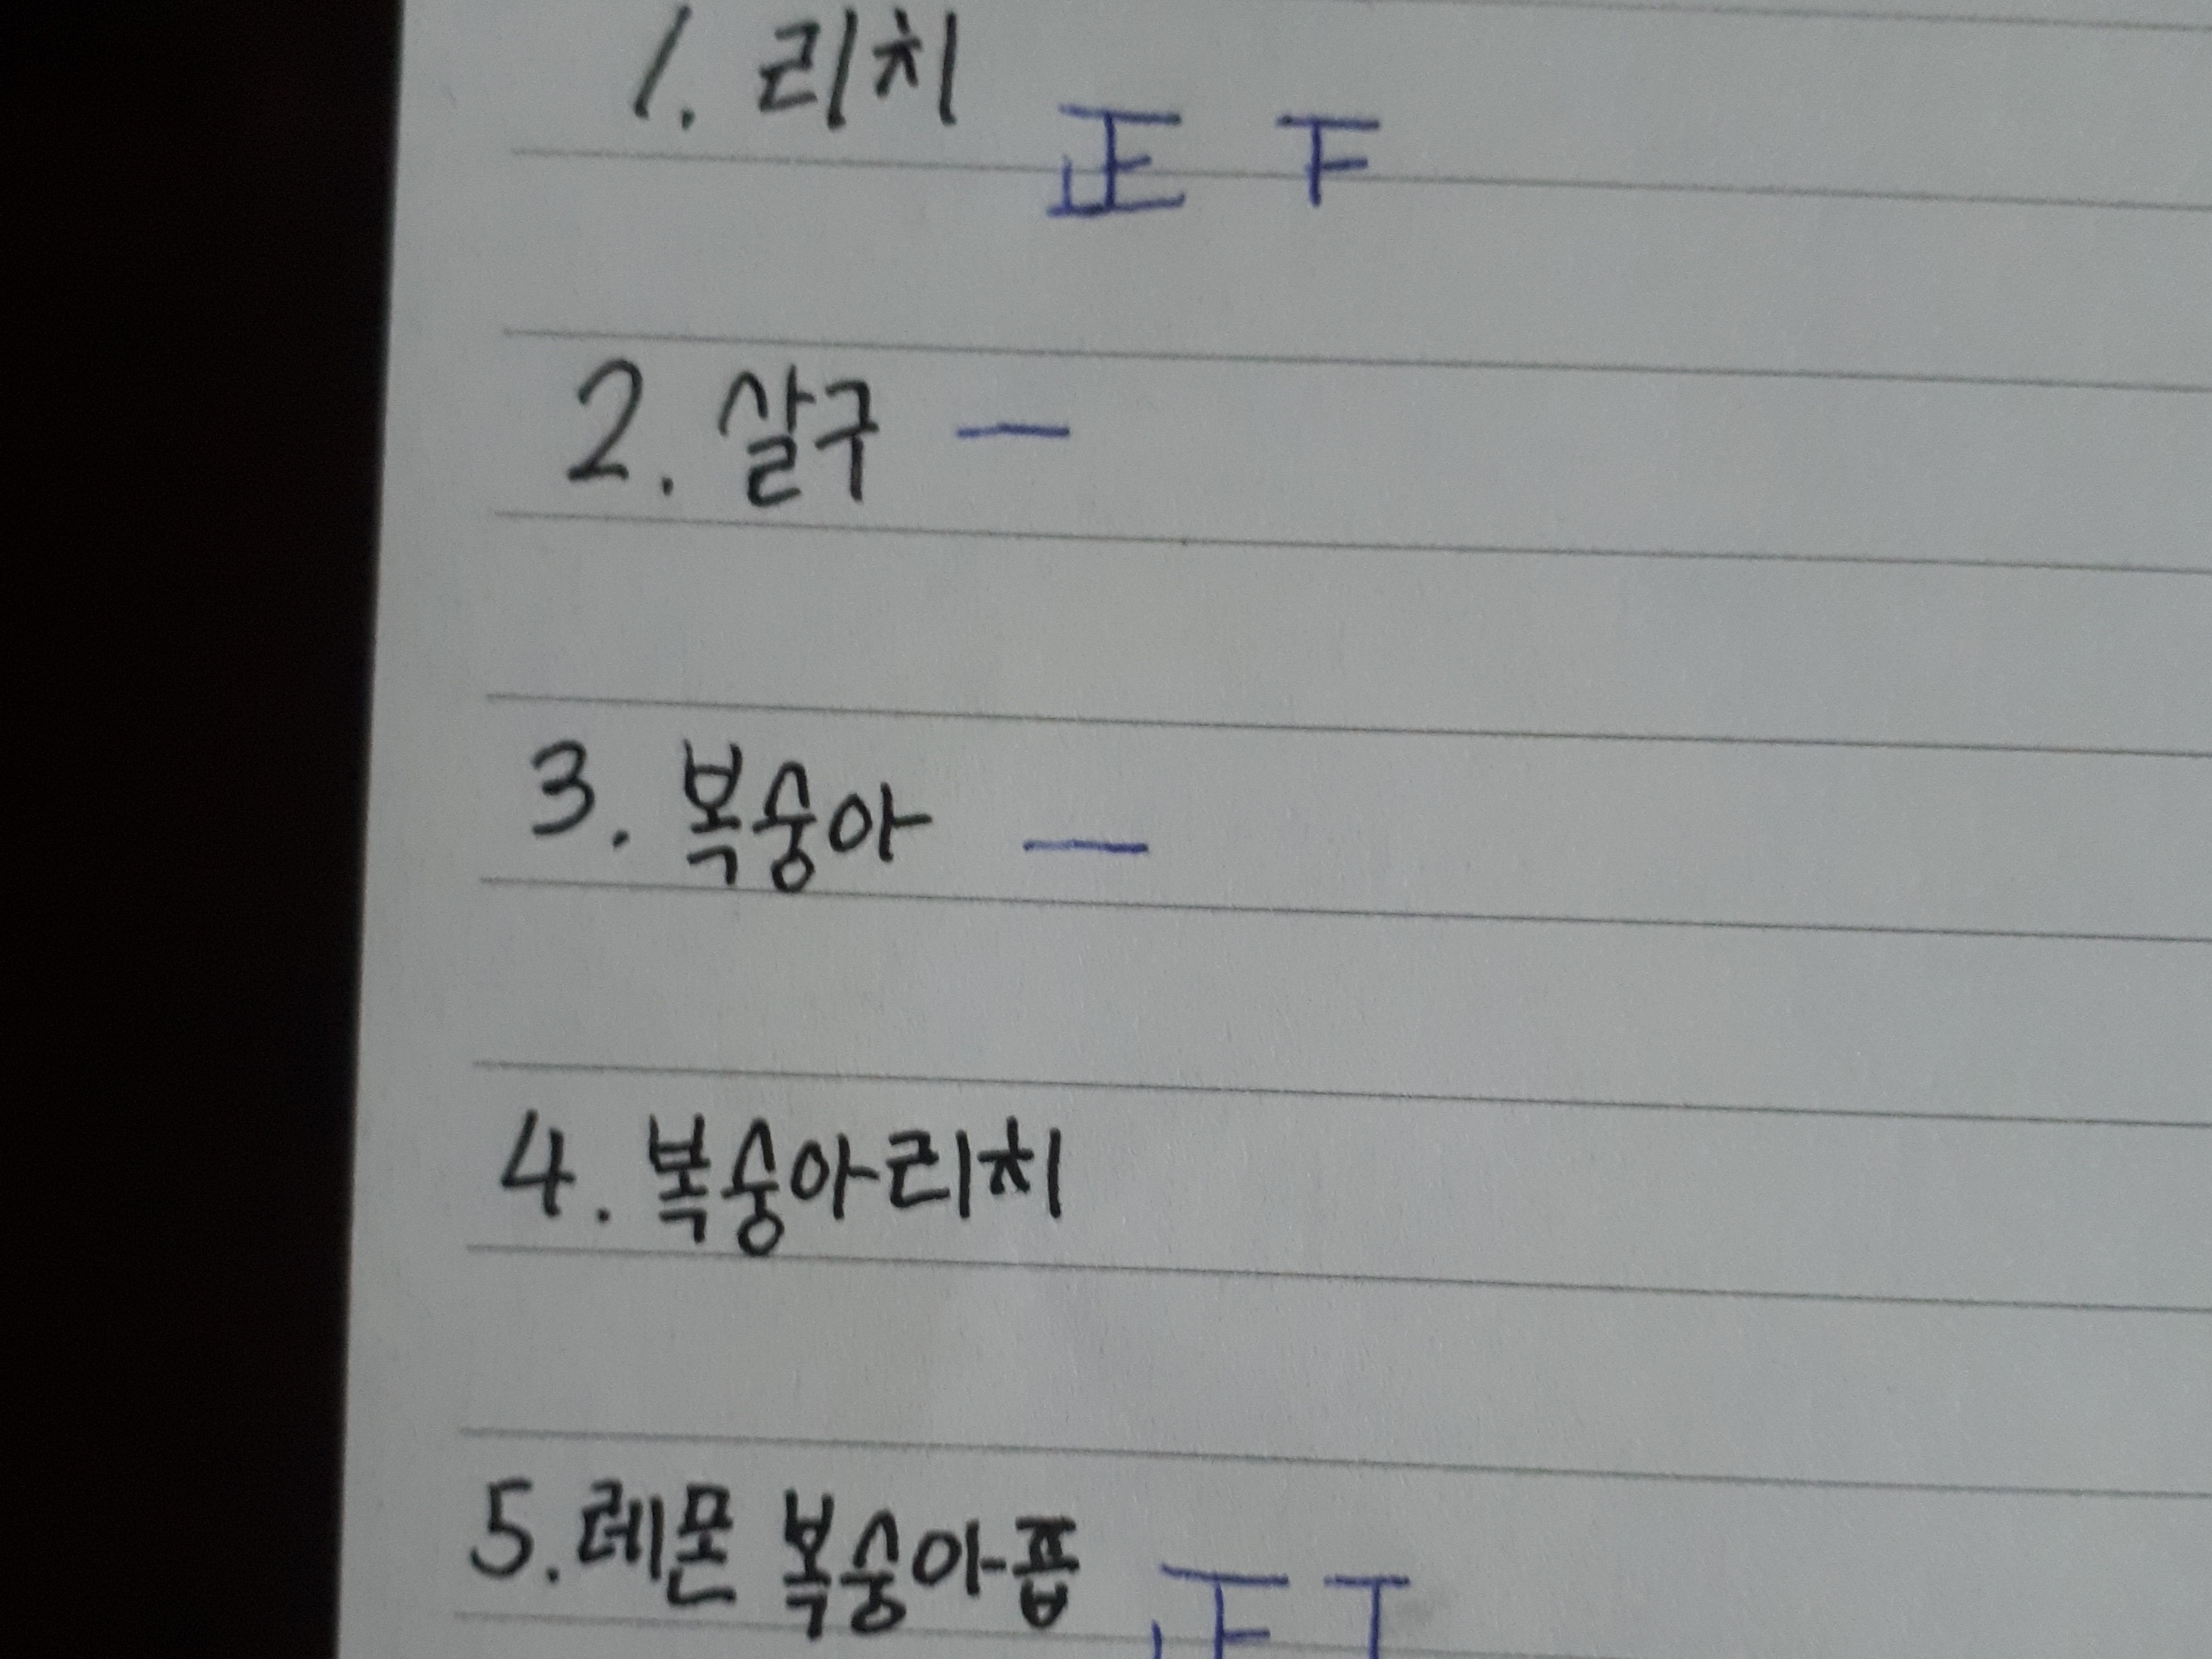 1. 리치 正 F
2. 살구 一
3. 복숭아 一
4. 복숭아리치
5. 레몬 복숭아쯥 正 T